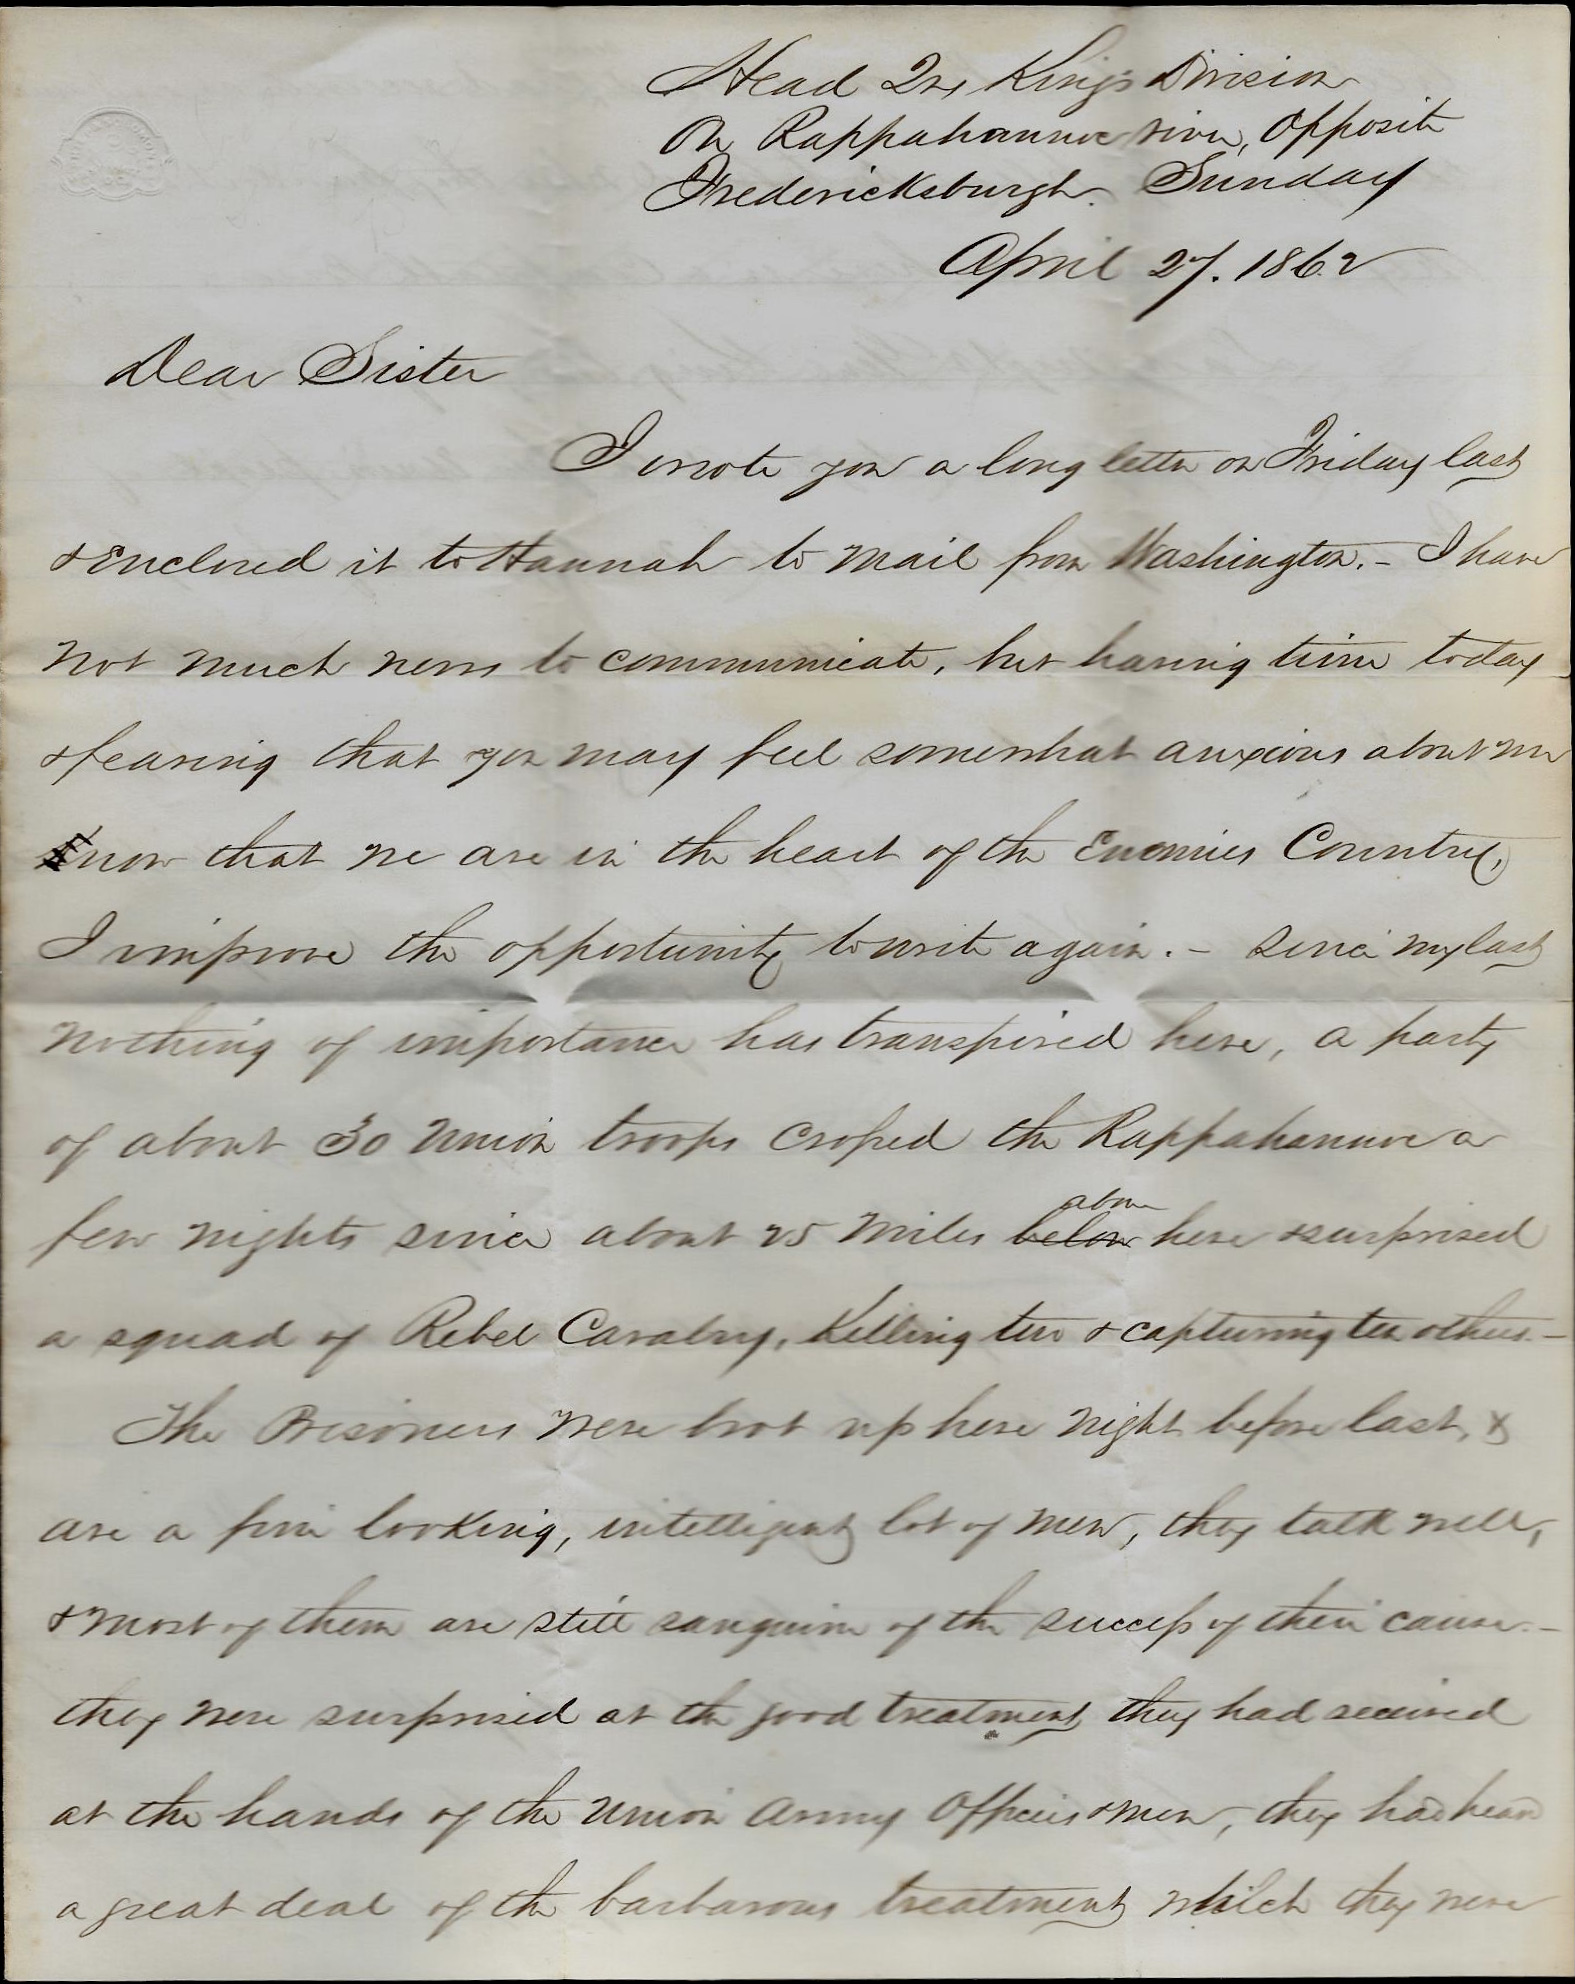 Head Qrs Kings Division
On Rappahannoc river, Opposite
Fredericksburgh. Sunday
April 27. 1862
Dear Sister
I wrote you a long letter on Friday last
& enclosed it to Hannah to mail from Washington. - I have
not much news to communicate, but having time today
& fearing that you may feel somewhat anxious about me
now that we are in the heart of the Enemies Country,
I improve the opportunity to write again. - Since my last
nothing of importance has transpired here, a party
of about 30 Union troops crossed the Rappahannoc a
few nights since about 25 miles below above here & surprised
a squad of Rebel Cavalry, Killing two & capturing ten others. -
The Prisoners were brot up here night before last, &
are a fine looking, intelligent lot of men, they talk well,
& most of them are still sanguine of the success of their cause. -
they were surprised at the good treatment they had received
at the hands of the Union Army Officers & men, they had heard
a great deal of the barbarous treatment which they were